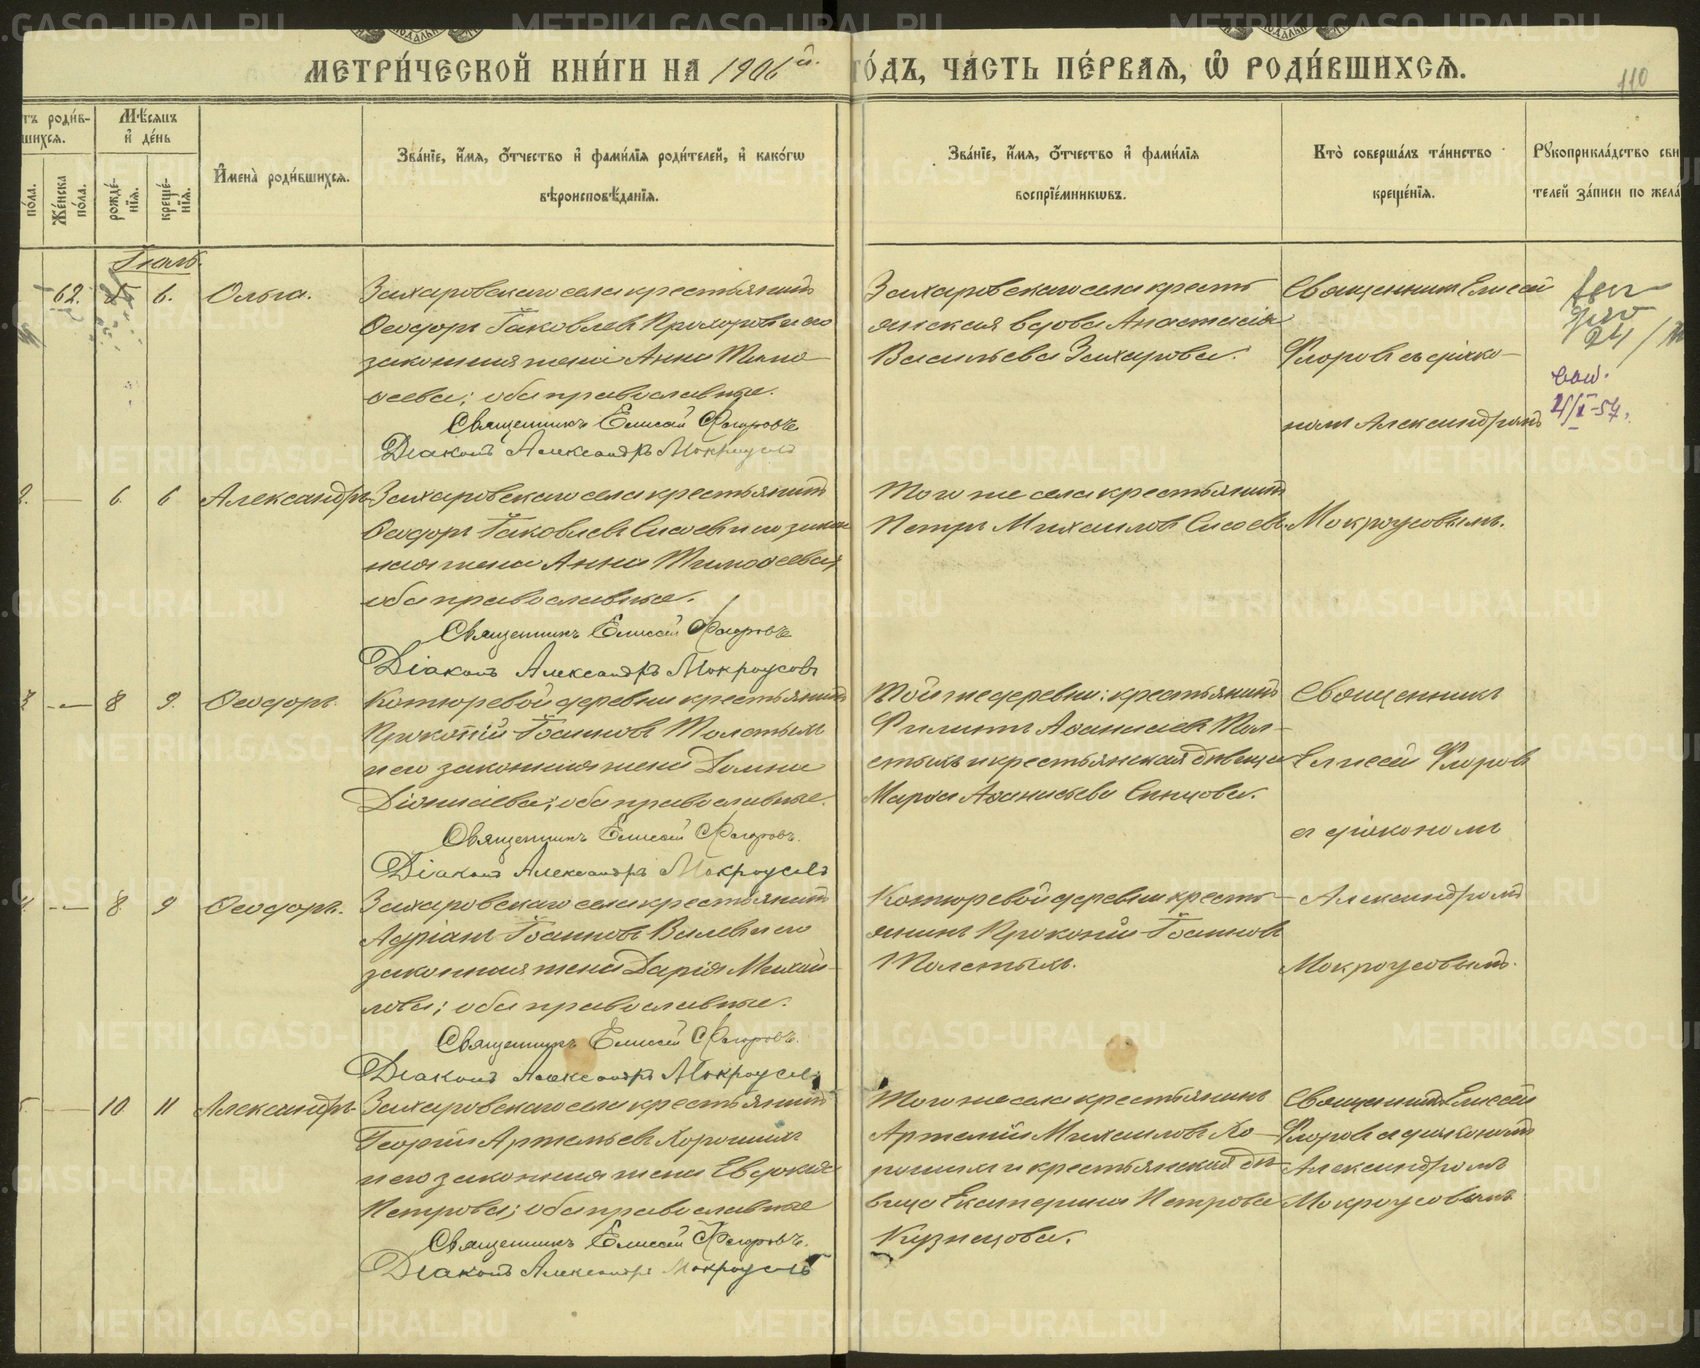 МЕТРИ́ЧЕСКОЙ КНИ́ГИ НА 1906й.
ГО́ДЪ, ЧА́СТЬ ПЕ́РВАЯ, Ѡ РОДИ́ВШИХСЯ.
110
тъ роди́в-
шихся.
по́ла.
Же́нска по́ла.
Мѣ́сяцъ и де́нь
рожде́-нія.
креще́-нія.
И҆мена̀ роди́вшихся.
Зва́ніе, и҆́мя, ѻ҆́тчество и҆ фами́лія роди́телей, и҆ како́гѡ
вѣроисповѣ́данія.
Зва́ніе, и҆́мя, ѻ҆́тчество и҆ фами́лія
воспріе́мникѡвъ.
Кто̀ соверша́лъ та́инство
креще́нія.
Рꙋкоприкла́дство сви
телей за́писи по жела́
62.
6.
Ольга.
Захаровскаго села крестьянинъ
Ѳеодоръ Іаковлевъ Прохоровъ и его
законная жена Анна Тимо-
ѳеева; оба православные.
Священникъ Елисей Флоровъ
Діаконъ Александръ Мокроусовъ
Захаровскаго села кресть
янская вдова Анастасія
Васильева Захарова.
Священникъ Елисей
Флоровъ съ діако-
номъ Александромъ
Мокроусовымъ.
24/
6 6 Александръ
Захаровскаго села крестьянинъ
Ѳеодоръ Іаковлевъ Сысоевъ и его закон
ная жена Анна Тимоѳеева;
оба православные.
Священникъ Елисей Флоровъ
Діаконъ Александръ Мокроусовъ
Того же села крестьянинъ
Петръ Михаиловъ Сысоевъ
8 9. Ѳеодоръ.
деревни крестьянинъ
Прокопій Іоанновъ Толстыхъ
и его законная жена Домна
Діонисіева; оба православные.
Священникъ Елисей Флоровъ.
Діаконъ Александръ Мокроусовъ
Той же деревни: крестьянинъ
Филиппъ Аѳанасіевъ Тол-
стыхъ и крестьянская дѣвица
Марѳа Аѳанасьева Синцова.
Священникъ
Елисей Флоровъ
съ діакономъ
Александромъ
Мокроусовымъ.
8. 9 Ѳеодоръ.
Захаровскаго села крестьянинъ
Адріанъ Іоанновъ и его
законная жена Дарія Михай-
лова; оба православные.
Священникъ Елисей Флоровъ.
Діаконъ Александръ Мокроусовъ
деревни кресть-
янинъ Прокопій Іоанновъ
Толстыхъ.
10 11 Александръ
Захаровскаго села крестьянинъ
Георгій Артемьевъ Хорошихъ
и его законная жена Евдокія
Петрова; оба православные
Священникъ Елисей Флоровъ.
Діаконъ Александръ Мокроусовъ
Того же села крестьянинъ
Артемій Михаиловъ Хо-
рошихъ и крестьянская дѣ-
вица Екатерина Петрова
Кузнецова.
Священникъ Елисей
Флоровъ съ діакономъ
Александромъ
Мокроусовымъ
METRIKI.GASO-URAL.RU